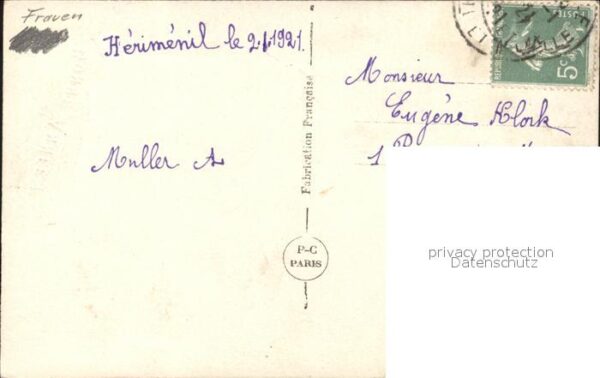 Frauen
Hériménil le 2.1.1921.
Muller A
Fabrication Française
P-C
PARIS
Monsieur
Eugène Klork
1
5c
privacy protection
Datenschutz